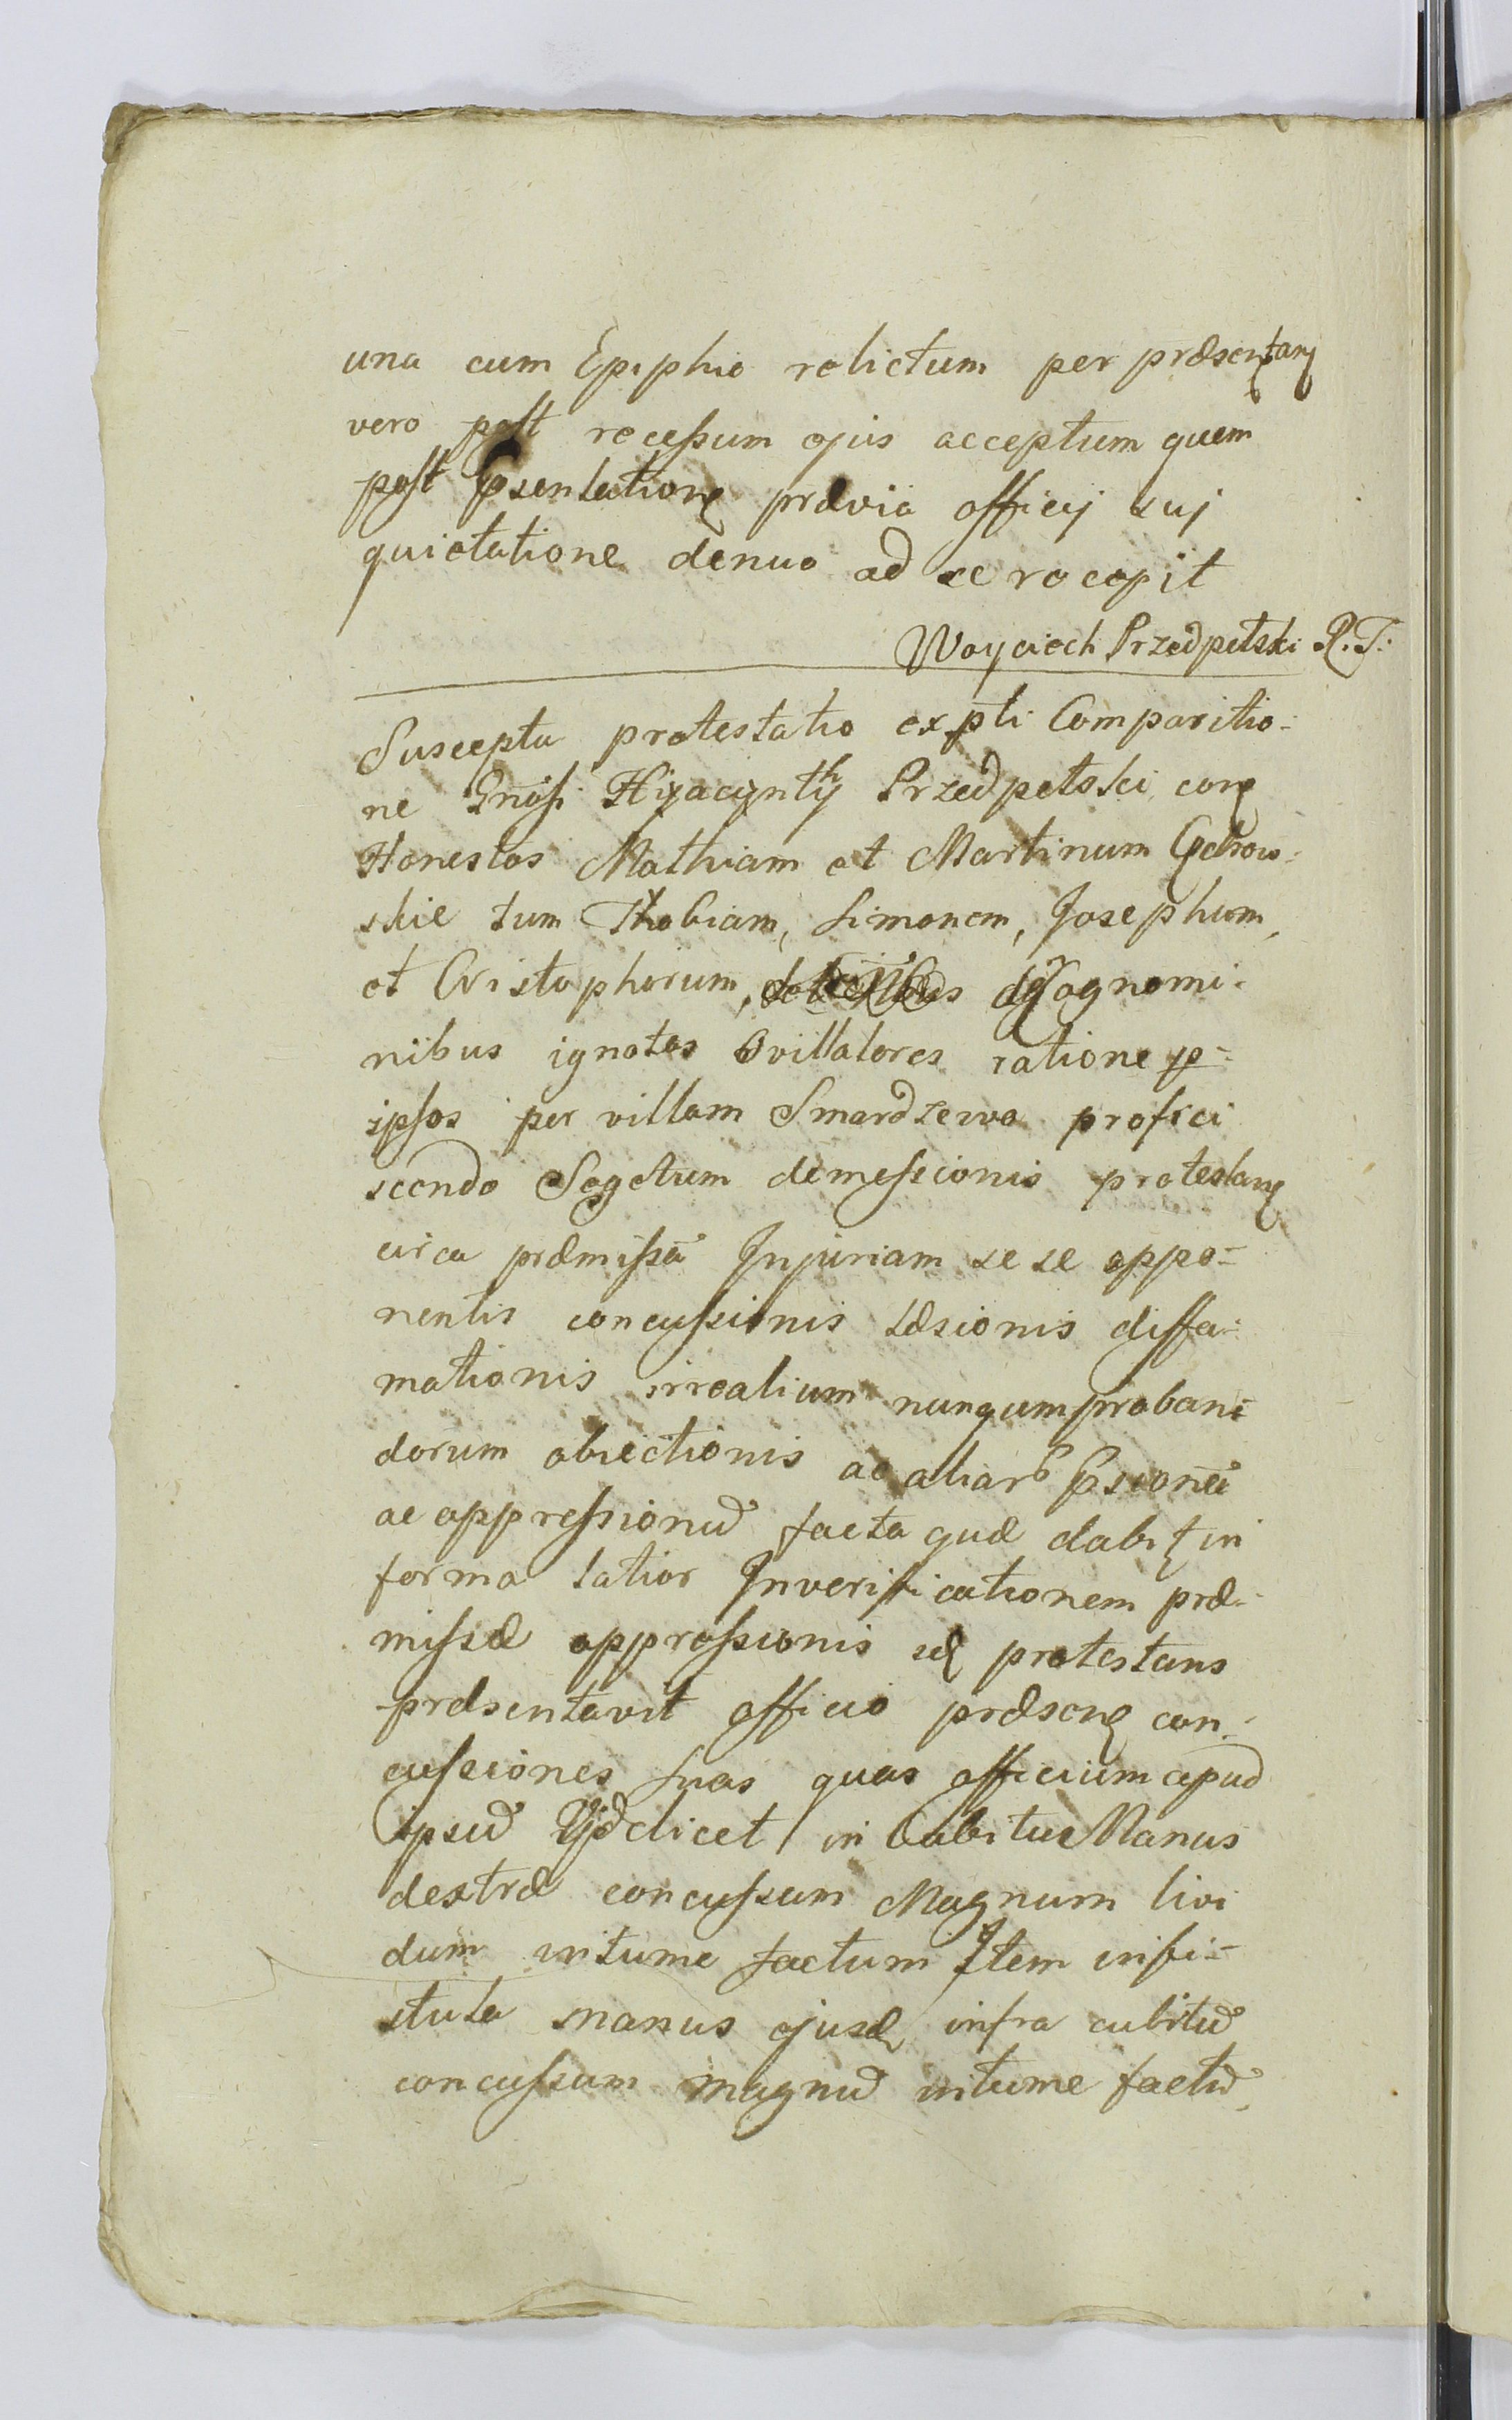 una cum Epiphio relictum per præsentan
vero post recessum ejus acceptum quem
post psentatione prævia officij suj
quietatione denuo ad se recepit
Woyciech Przedpełski R. T:
Suscepta protestatio ex pti Comparitio-
ne Gnosi Hyacynthÿ Przedpełski con
Honestos Mathiam et Martinum
skie tum Thobiam, Simonem, Josephum,
et Cristophorum, de Cognomi-
nibus ignotos Ovillatores ratione p-
ipsos per villam Smardzewo profici
scendo Segetum demessionis protestan
circa præmissā Injuriam se se oppo-
nentis concussionis Læsionis diffa-
mationis irrealium nunqum proban-
dorum obiectionis ac aliar psionū
ac oppressionū facta quæ dabit in
forma latior Inverificationem præ-
missæ oppressionis id protestans
præsentavit officio præsen con-
cussiones suas quas officium apud
ipsū Vjdelicet in Cubitu Manus
dextræ concussum Magnum livi
dum intume factum Item in fi-
stula manus ejusd infra cubitū
concussum magnū intume factū,